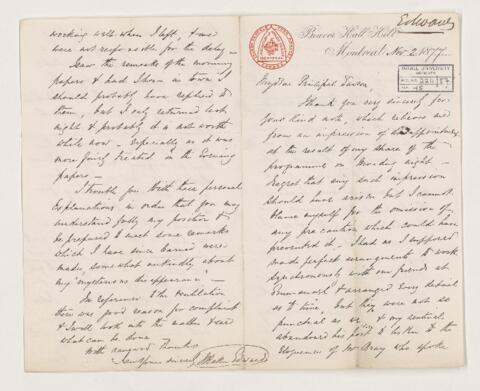 Edwards
Beaver Hall Hill
Montreal Nov 2 1877
McGILL UNIVERSITY
ARCHIVES
My dear Principal Dawson,
Thank you very sincerely for
your kind note, which relieves me
from an impression of disappointment
at the result of my share of the
programme on Monday night -
I regret that any such impression
should have arisen but I cannot
blame myself for the omission of
any precaution which could have
prevented it - I had as I supposed
made perfect arrangements to work
synchronously with our friends at
& arranged every detail
as to time. But they were not so
punctual as we, & my sentinel
abandoned his post to listen to the
eloquence of Mr Bray who spoke
working well when I left, & we
were not responsible for the delay -
I saw the remarks of the morning
papers & had I been in town I
should probably have replied to
them, but I only returned last
night & probably it is not worth
while now - especially as it was
more fairly treated in the Evening
papers -
I trouble you with these personal
explanations in order that you may
understand fully my position &
be prepared to meet some remarks
which I have since learned were
made, somewhat unkindly about
my "mysterious disappearance" -
In reference to the ventilation
there was good reason for complaint
& I will look into the matter & see
what can be done
With renewed thanks
I am yours sincerely J Baker Edwards